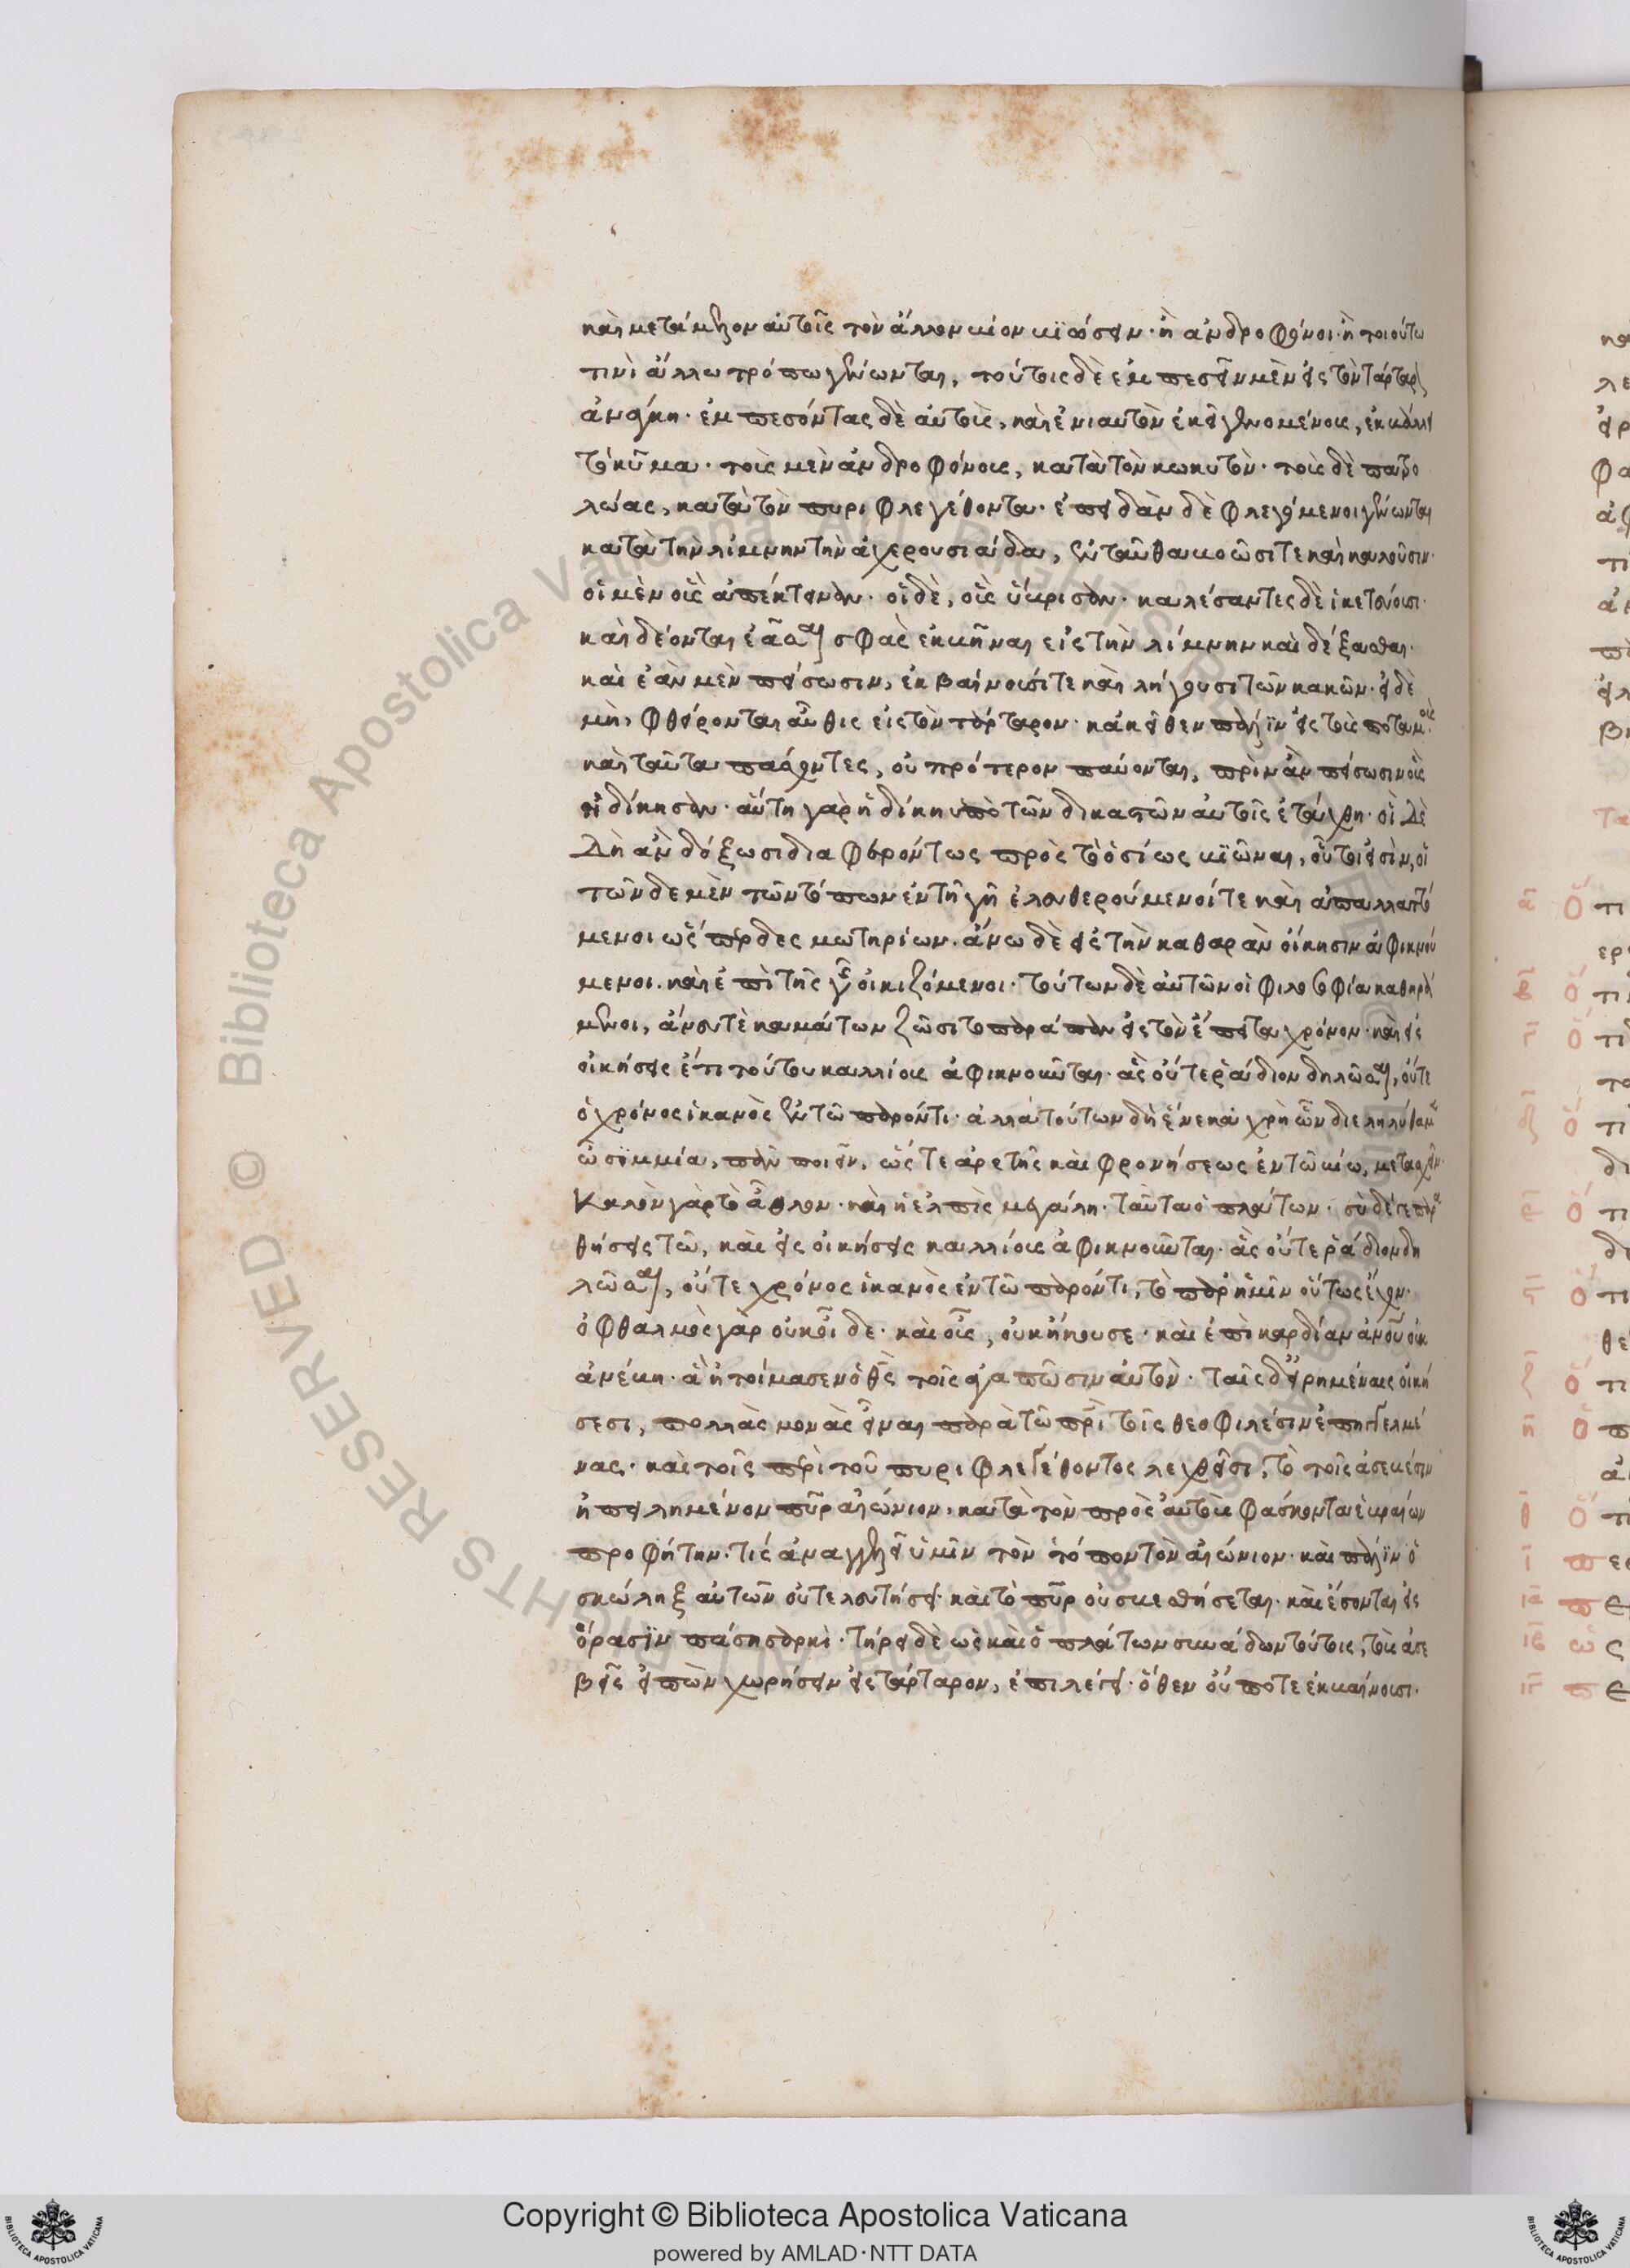 καὶ μεταμέλον αὐτοῖς τὸν ἄλλον βίον βιῶσιν· ἢ ἀνδροφόνοι· ἢ τοιούτω
τινὶ ἄλλω τρόπω γένωνται, τούτοις δὲ ἐμπεσεῖν μὲν εἰς τὸν Τάρταρον
ἀνάγκη· ἐμπεσόντας δὲ αὐτοὺς, καὶ ἐνιαυτὸν ἐκεῖ γενομένους, ἐκβάλλει
τὸ κῦμα· τοὺς μὲν ἀνδροφόνους, κατὰ τὸν κωκυτόν· τοὺς δὲ πατρο
λώας, κατὰ τὸν πυριφλεγέθοντα· ἐπειδὰν δὲ φλεγόμενοι γένωνται
κατὰ τὴν λίμνην τὴν ἀχερουσιάδα, ἐνταῦθα βοῶσί τε καὶ καλοῦσιν·
οἱ μὲν οὓς ἀπέκτειναν· οἱ δὲ, οὓς ὕβρισαν· καλέσαντες δὲ ἱκετεύουσι·
καὶ δέονται ἐᾶσαι σφᾶς ἐκβῆναι εἰς τὴν λίμνην καὶ δέξασθαι·
καὶ ἐὰν μὲν πείσωσιν, ἐκβαίνουσί τε καὶ λήγουσι τῶν κακῶν· εἰ δὲ
μὴ, φέρονται αὖθις εἰς τὸν τάρταρον· κἀκεῖθεν πάλιν εἰς τοὺς ποταμούς·
καὶ ταῦτα πάσχοντες, οὐ πρότερον παύονται, πρὶν ἂν πείσωσιν οὓς
ἠδίκησαν· αὕτη γὰρ ἡ δίκη ὑπὸ τῶν δικαστῶν αὐτοῖς ἐτάχθη· οἱ δὲ
δὴ ἂν δόξωσι διαφερόντως πρὸς τὸ ὁσίως βιῶναι, οὗτοί εἰσιν, οἱ
τῶνδε μὲν τῶν τόπων ἐν τῇ γῇ ἐλευθερούμενοί τε καὶ ἀπαλλαττό
μενοι ὥσπερ δεσμωτηρίων· ἄνω δὲ εἰς τὴν καθαρὰν οἴκησιν ἀφικνού
μενοι· καὶ ἐπὶ τῆς γῆς οἰκιζόμενοι· τούτων δὲ αὐτῶν οἱ φιλοσοφία καθηρά
μενοι, ἄνευ τε καμάτων ζῶσι τὸ παράπαν εἰς τὸν ἔπειτα χρόνον· καὶ εἰς
οἰκήσεις ἔτι τούτου καλλίους ἀφικνοῦνται· ἃς οὔτε ῥάδιον δηλῶσαι, οὔτε
ὁ χρόνος ἱκανὸς ἐν τῶ παρόντι· ἀλλὰ τούτων δὴ ἕνεκα χρὴ ὧν διεληλύθαμεν
ὦ σιμμία, πᾶν ποιεῖν, ὥστε ἀρετῆς καὶ φρονήσεως ἐν τῶ βίω, μετασχεῖν·
Καλὸν γὰρ τὸ ἆθλον· καὶ ἡ ἐλπὶς μεγάλη· Ταῦτα ὁ πλάτων· σὺ δέ γε παρα
θήσεις τῶ, καὶ εἰς οἰκήσεις καλλίους ἀφικνοῦνται· ἃς οὔτε ῥάδιον δη
λῶσαι, οὔτε χρόνος ἱκανὸς ἐν τῶ παρόντι, τὸ παρ' ἡμῖν οὕτως ἔχον·
ὀφθαλμὸς γὰρ οὐκ οἶδε· καὶ οὖς, οὐκ ἤκουσε· καὶ ἐπὶ καρδίαν ἀνοῦ οὐκ
ἀνέβη· ἃ ἡτοίμασεν ὁ θς τοῖς ἀγαπῶσιν αὐτόν· Ταῖς δ' εἰρημέναις οἰκή
σεσι, πολλὰς μονὰς εἶναι παρὰ τῶ πρὶ τοῖς θεοφιλέσιν ἐπηγγελμέ
νας· καὶ τοῖς περὶ τοῦ πυριφλεγέθοντος λεχθεῖσι, τὸ τοῖς ἀσεβέσιν
ἠπειλημένον πῦρ αἰώνιον· κατὰ τὸν πρὸς αὐτοὺς φάσκοντα ἑβραίων
προφήτην· τίς ἀναγγελεῖ ὑμῖν τὸν τόπον τὸν αἰώνιον· καὶ πάλιν ὁ
σκώληξ αὐτῶν οὐ τελευτήσει· καὶ τὸ πῦρ οὐ σβεσθήσεται· καὶ ἔσονται εἰς
ὅρασιν πάση σαρκί· τήρει δὲ ὡς καὶ ὁ πλάτων συνάδων τούτοις, τοὺς ἀσε
βεῖς εἰπὼν χωρήσειν εἰς τάρταρον, ἐπιλέγει· ὅθεν οὔποτε ἐκβαίνουσι·